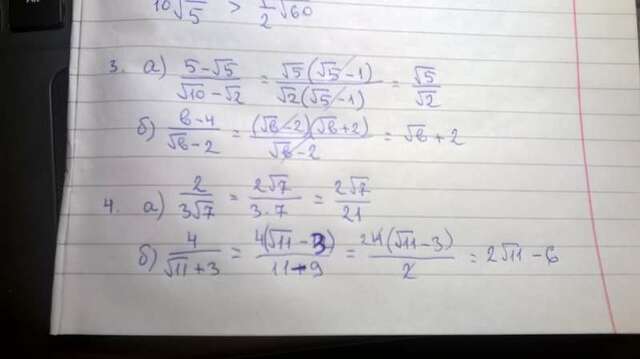 10√5 > 1/2 √60
3. а) (5-√5)/(√10-√2) = (√5(√5-1))/(√2(√5-1)) = √5/√2
б) (в-4)/(√в-2) = ((√в-2)(√в+2))/(√в-2) = √в+2
4. а) 2/(3√7) = (2√7)/(3·7) = (2√7)/21
б) 4/(√11+3) = (4(√11-3))/(11-9) = (4(√11-3))/2 = 2√11-6